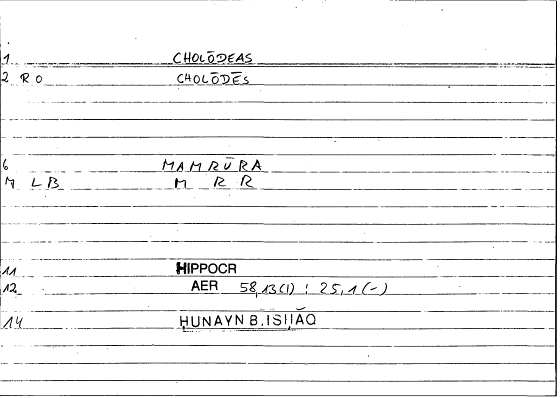 1 CHOLŌDEAS
2 R O CHOLŌDĒS
6 MAMRŪRA
M L B M R R
11 HIPPOCR
12 AER 58,13(1) : 25,1(-)
14 ḤUNAYN B. ISḤĀQ